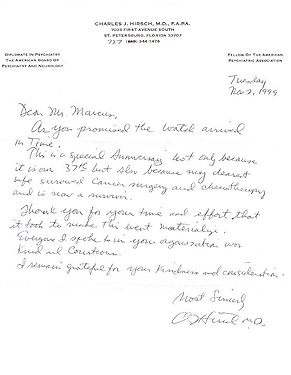 CHARLES J. HIRSCH, M.D., F.A.P.A.
7035 FIRST AVENUE SOUTH
ST. PETERSBURG, FLORIDA 33707
727 (813) 344-1478
DIPLOMATE IN PSYCHIATRY
THE AMERICAN BOARD OF
PSYCHIATRY AND NEUROLOGY
FELLOW OF THE AMERICAN
PSYCHIATRIC ASSOCIATION
Tuesday
Nov 2, 1999
Dear Mr. Marcus,
As you promised the watch arrived
in Time!
This is a special Anniversary not only because
it is our 37th but also because my dearest
wife survived cancer surgery and chemotherapy
and is now a survivor.
Thank you for your time and effort that
it took to make this event materialize.
Everyone I spoke to in your organization was
Kind and Courteous.
I remain grateful for your kindness and consideration.
Most Sincerely
CJ Hirsch M.D.